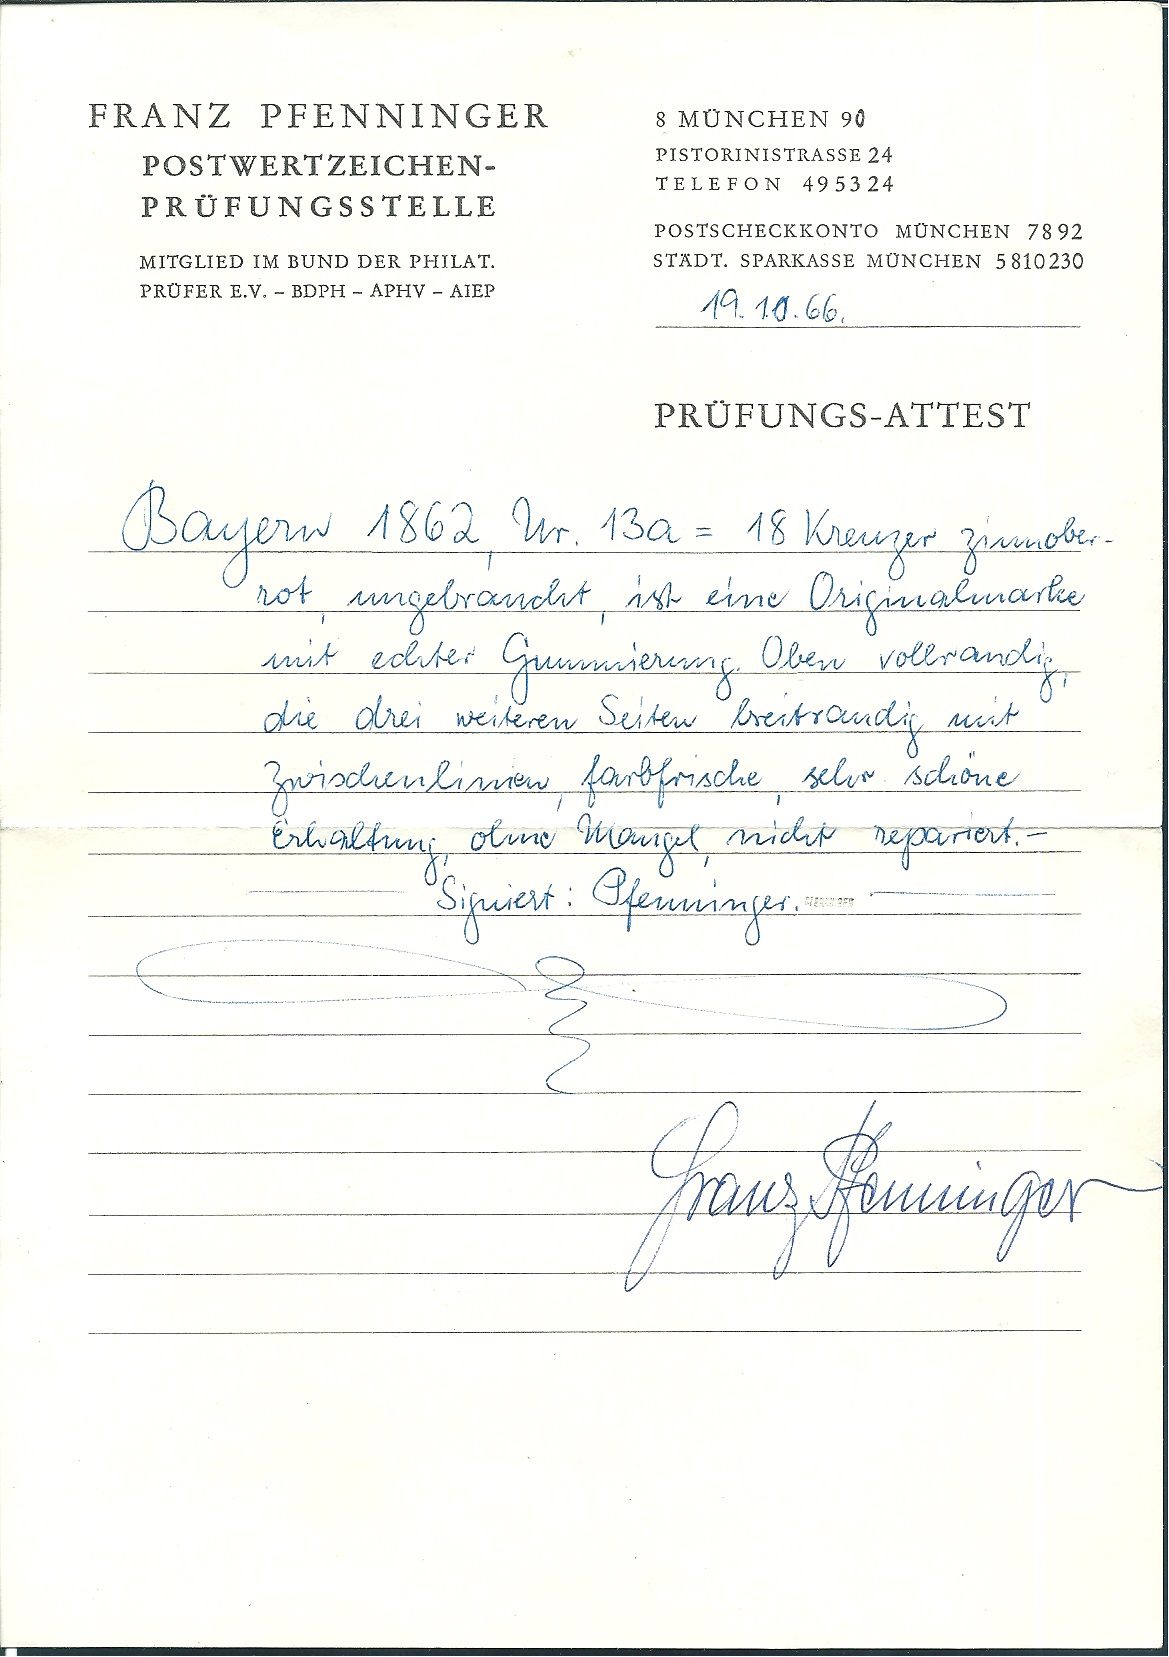 FRANZ PFENNINGER
POSTWERTZEICHEN-
PRÜFUNGSSTELLE
MITGLIED IM BUND DER PHILAT.
PRÜFER E.V. – BDPH – APHV – AIEP
8 MÜNCHEN 90
PISTORINISTRASSE 24
TELEFON 495324
POSTSCHECKKONTO MÜNCHEN 7892
STÄDT. SPARKASSE MÜNCHEN 5810230
19.10.66.
PRÜFUNGS-ATTEST
Bayern 1862, Nr. 13a = 18 Kreuzer zinnober-
rot, ungebraucht, ist eine Originalmarke
mit echter Gummierung. Oben vollrandig,
die drei weiteren Seiten breitrandig mit
Zwischenlinien, farbfrische, sehr schöne
Erhaltung, ohne Mangel, nicht repariert.–
Signiert: Pfenninger. PFENNINGER
Franz Pfenninger